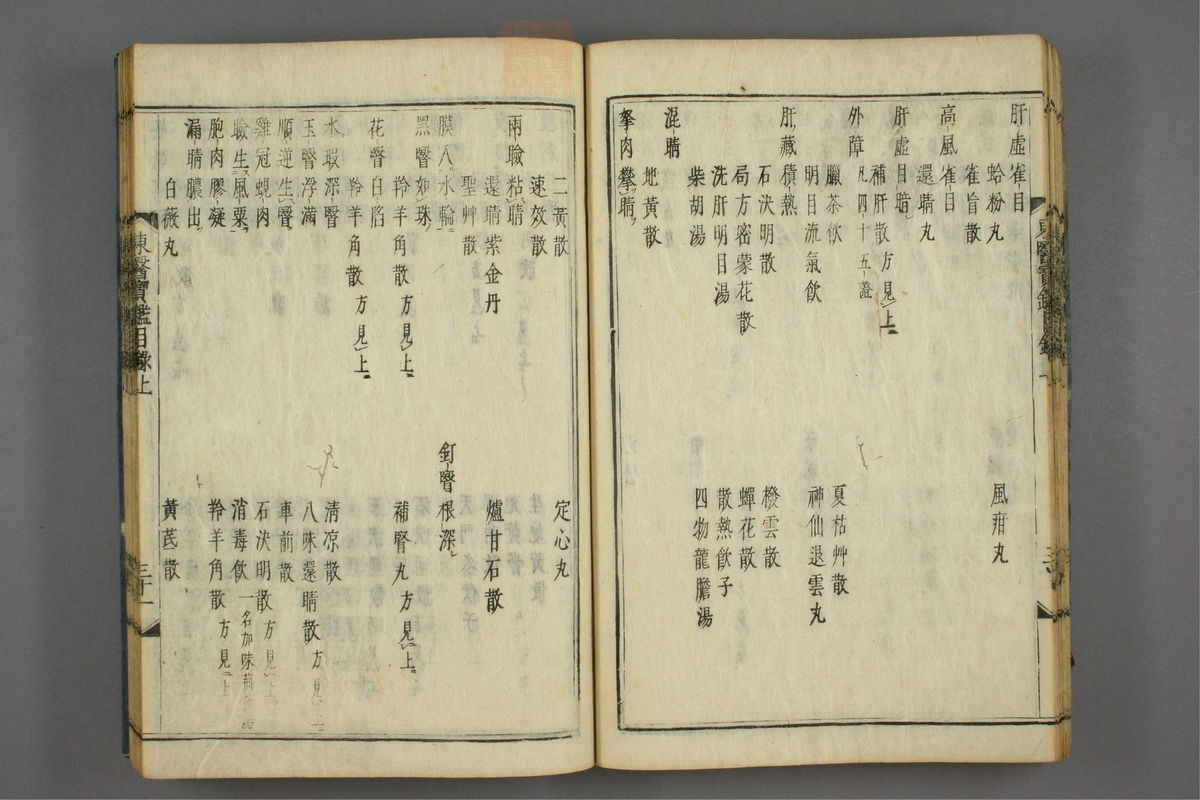 肝虛雀目
蛤粉丸 風疳丸
雀盲散
高風雀目
還睛丸
肝虛目暗
補肝散方見上
外障 凡四十五證
臘茶飮 夏枯艸散
明目流氣飮 神仙退雲丸
肝藏積熱
石決明散 撥雲散
局方密蒙花散 蟬花散
洗肝明目湯 散熱飮子
柴胡湯 四物龍膽湯
混睛
地黃散
拳肉攀睛
東醫寶鑑目錄上
二黃散 定心丸
速效散
兩瞼粘睛
還睛紫金丹 爐甘石散
聖艸散
膜入水輪 釘瞖根深
黑瞖如珠
羚羊角散方見上 補腎丸方見上
花瞖白陷
羚羊角散方見上 淸涼散
水瑕深瞖
玉瞖浮滿 八味還睛散方見上
順逆生瞖 車前散
雞冠蜆肉 石決明散方見上
瞼生風粟 消毒飮一名加味荊
胞肉膠凝 羚羊角散方見上
漏睛膿出
白薇丸 黃芪散
東醫寶鑑目錄上 三十一